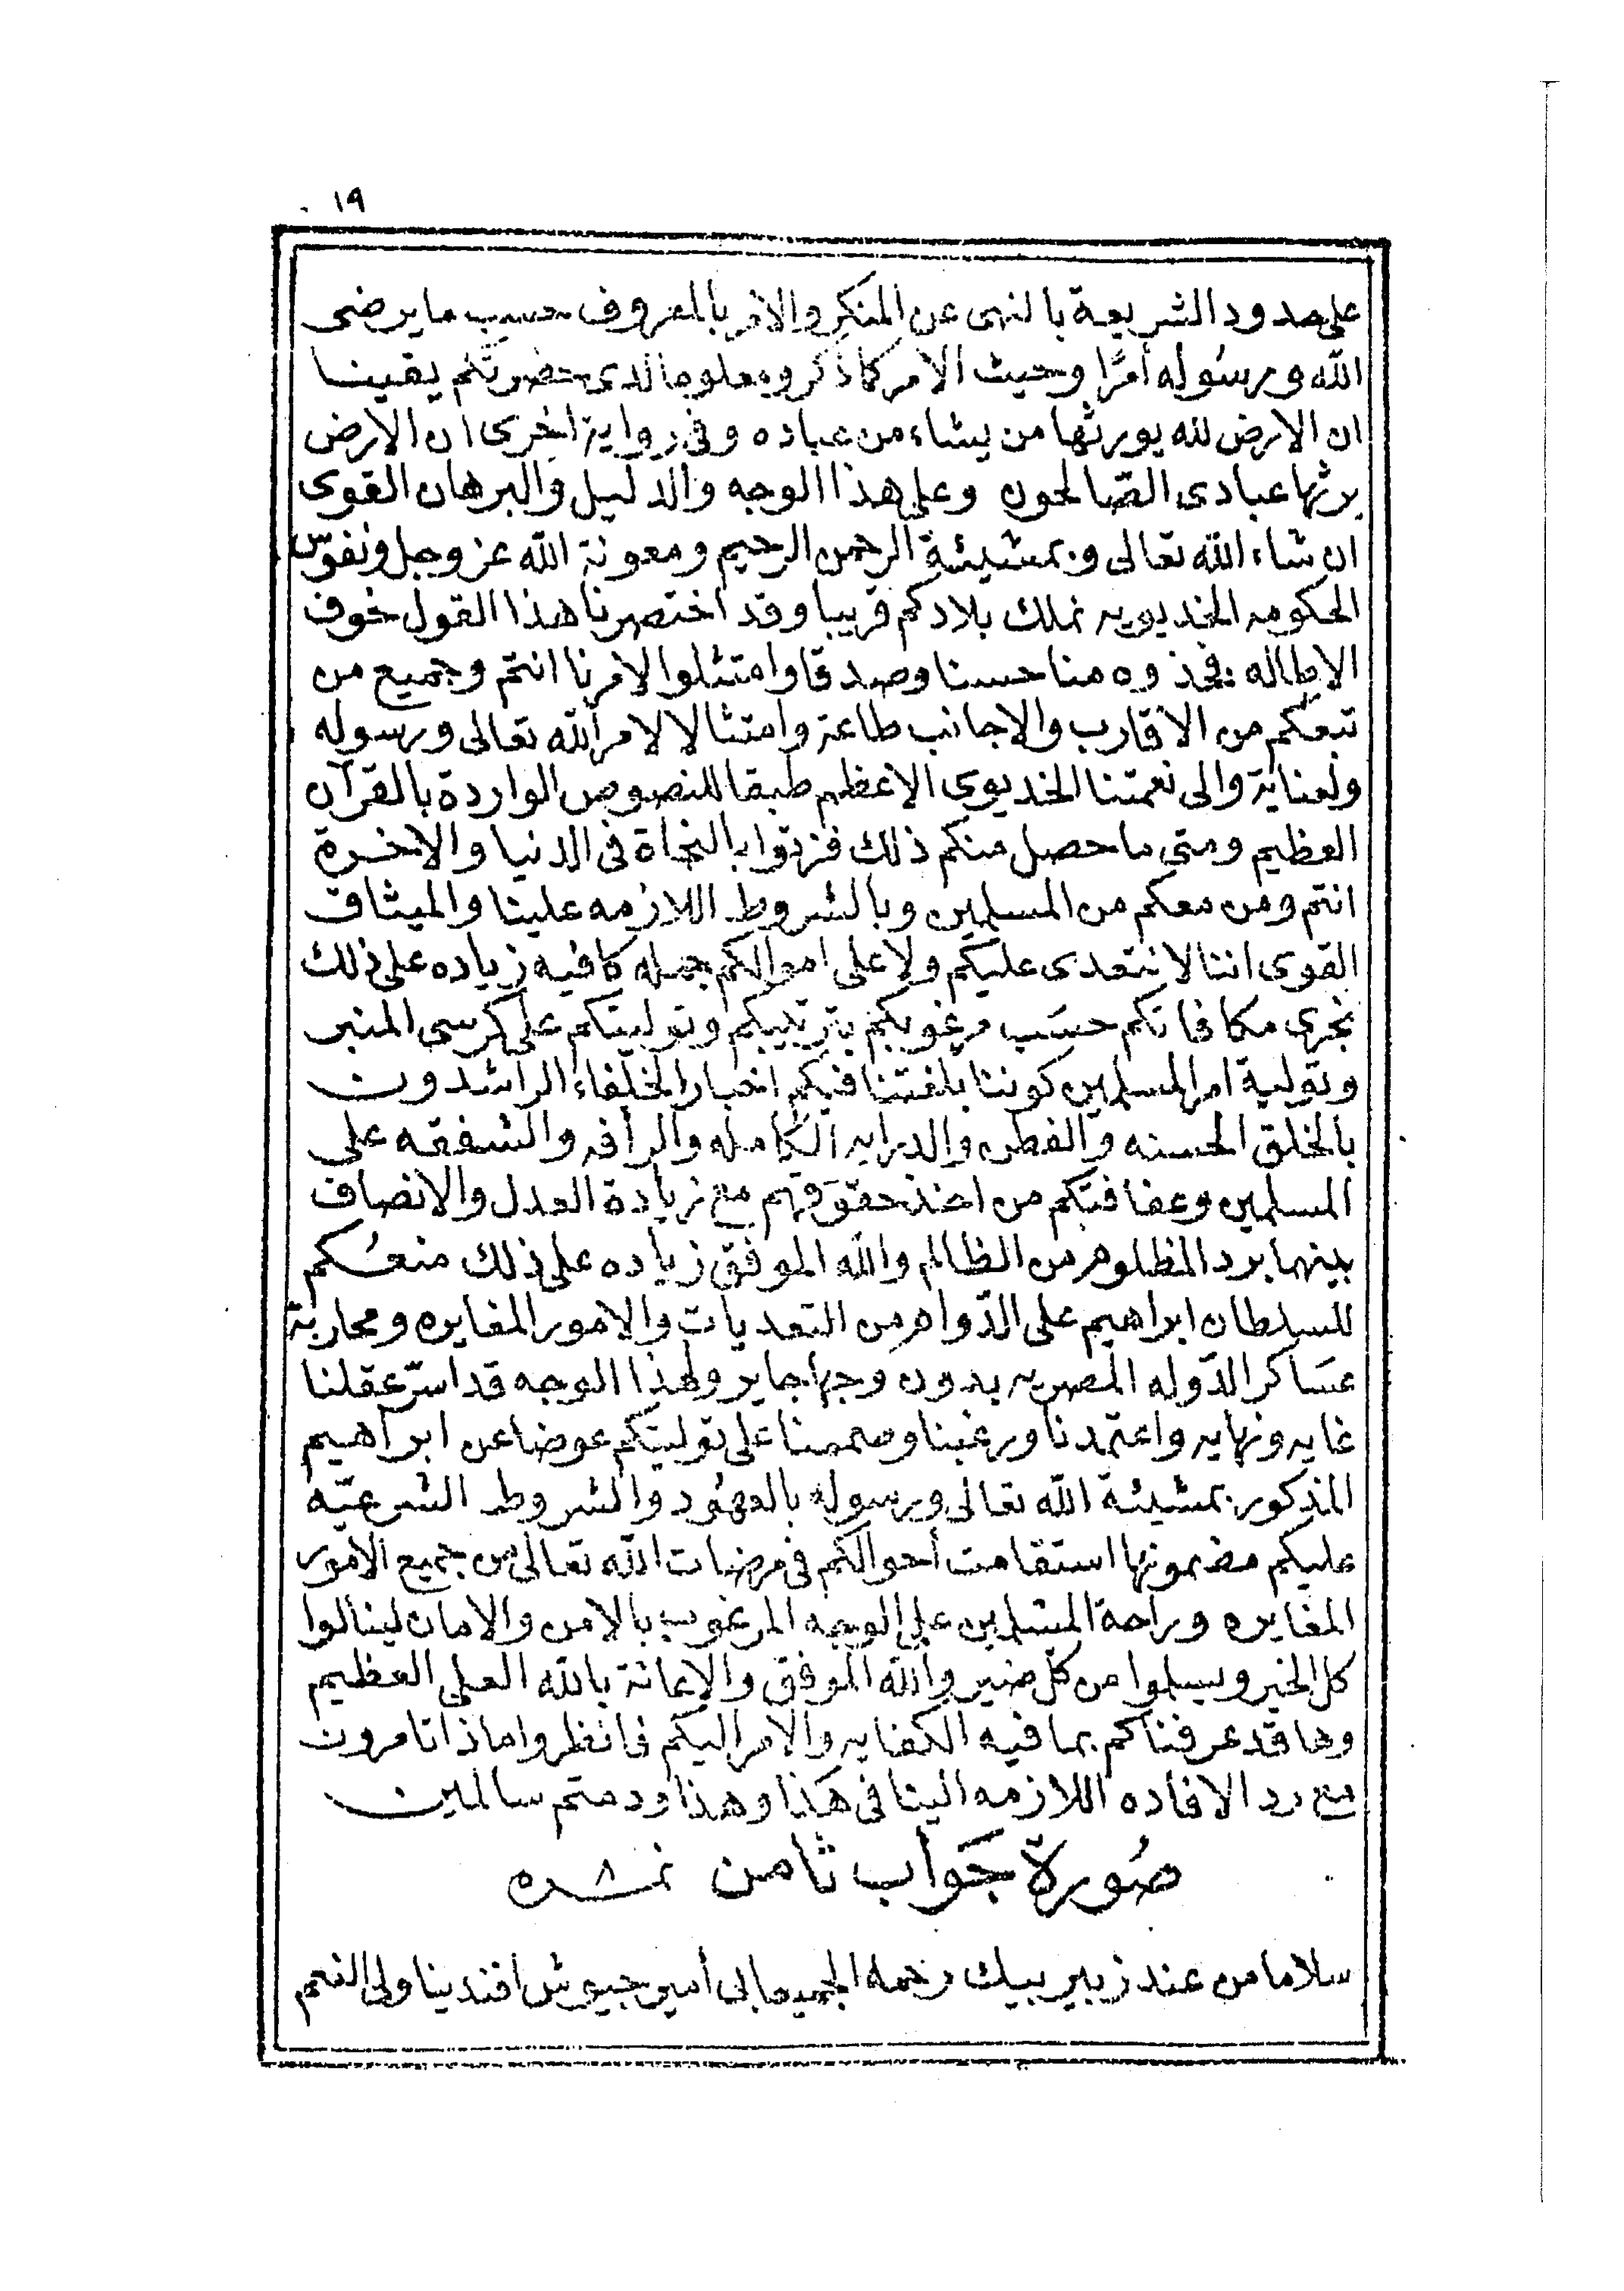 ١٩
على حدود الشريعة بالنهى عن المنكر والامر بالمعروف حسب ما يرضى
الله ورسوله أمرًا وحيث الامر كما ذكر ومعلوما لدى حضرتكم يقينا
ان الارض لله يورثها من يشاء من عباده وفى رواية اخرى ان الارض
يرثها عبادى الصّالحون وعلى هذا الوجه والدليل والبرهان القوى
ان شاء الله تعالى وبمشيئة الرحمن الرحيم ومعونة الله عز وجل ونفوّس
الحكومه الخديويه نملك بلادكم قريبا وقد اختصرنا هذا القول خوف
الاطاله فخذوه منا حسنا وصدقا وامتثلوا لامرنا انتم وجميع من
تبعكم من الاقارب والاجانب طاعة وامتثالا لامر الله تعالى ورسوله
ولعناية والى نعمتنا الخديوى الاعظم طبقا للنصوص الواردة بالقرآن
العظيم ومتى ما حصل منكم ذلك فزتوا بالنجاة فى الدنيا والاخرة
انتم ومن معكم من المسلمين وبالشروط اللازمه علينا والميثاق
القوى اننا لا نتعدى عليكم ولا على اموالكم جمله كافيه زياده على ذلك
نجرى مكافاتكم حسَب مرغوبكم بترتيبكم وتوليتكم على كرسى المنبر
وتولية امر المسلمين كوننا بلغتنا فيكم اخبار الخلفاء الراشدون
بالخلق الحسنه والفطن والدرايه الكامله والرأفه والشفقه على
المسلمين وعفافتكم من اخذ حقوقهم مع زيادة العدل والانصاف
بينهما برد المظلوم من الظالم والله الموفق زياده على ذلك منعُكم
للسلطان ابراهيم على الدّوام من التعديات والامور المغايره ومحاربة
عسَاكر الدّوله المصريه بدون وجها جاير ولهذا الوجه قد اسرّ عقلنا
غايه ونهايه واعتمدنا ورغبنا وصممنا على توليتكم عوضا عن ابراهيم
المذكور بمشيئة الله تعالى ورسوله بالعهُود والشروط الشرعيّه
عليكم مضمونها استقامت أحوالكم فى مرضات الله تعالى من جميع الامور
المغايره وراحة المسلمين على الوجه المرغوب بالامن والامان لينالوا
كل الخير ويسلموا من كل ضير والله الموفق والاعانة بالله العلى العظيم
وها قد عرفناكم بما فيه الكفايه والامر اليكم فانظروا ماذا تامرون
مع رد الافاده اللازمه الينا فى هكذا وهذا ودمتم سالمين
صُورة جَواب ثامن نمـ٨ـره
سلاما من عند زبير بيك رحمه الجميعابى أمير جيوش افندينا ولى النعم